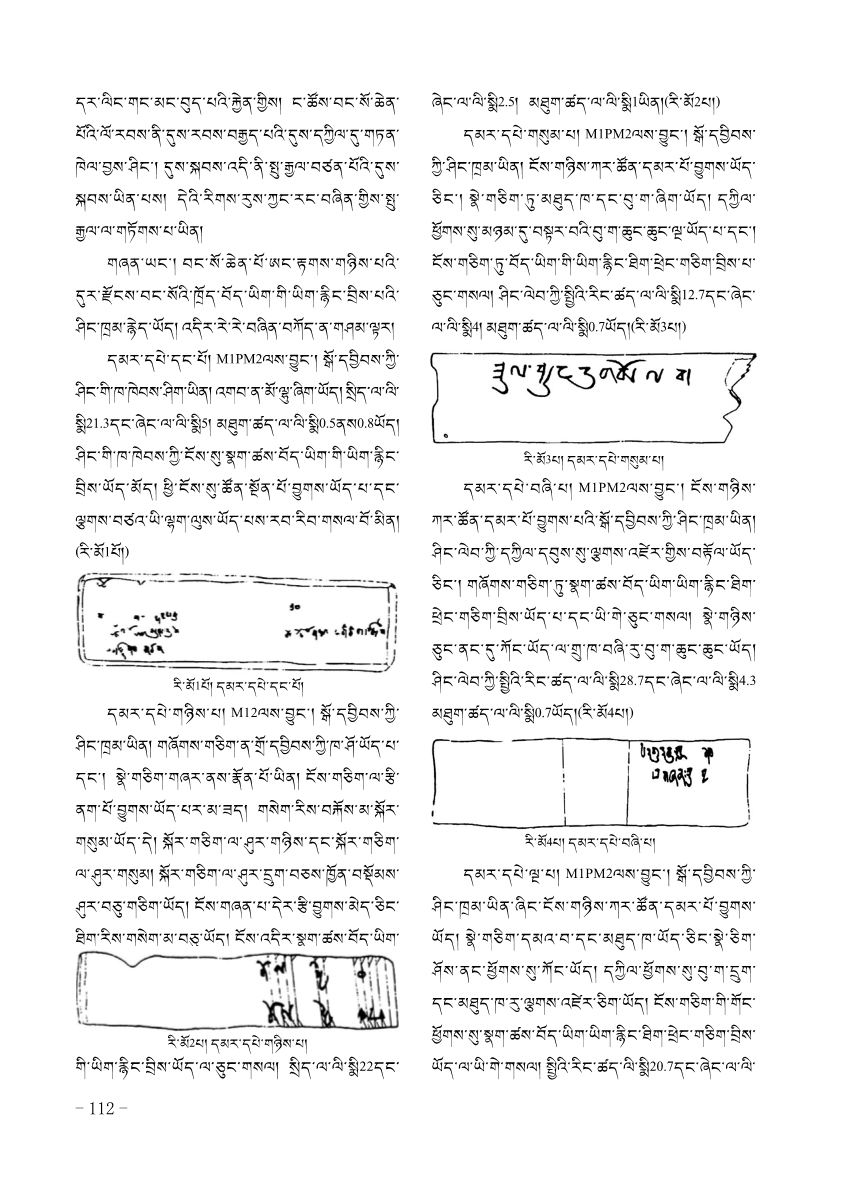 དར་ལིང་གང་མང་བུད་པའི་རྐྱེན་གྱིས། ང་ཚོས་བང་སོ་ཆེན་
པོའི་ལོ་རབས་ནི་དུས་རབས་བརྒྱད་པའི་དུས་དཀྱིལ་དུ་གཏན་
ཁེལ་བྱས་ཤིང་། དུས་སྐབས་འདི་ནི་སྤུ་རྒྱལ་བཙན་པོའི་དུས་
སྐབས་ཡིན་པས། དེའི་རིགས་རུས་ཀྱང་རང་བཞིན་གྱིས་སྤུ་
རྒྱལ་ལ་གཏོགས་པ་ཡིན།
གཞན་ཡང་། བང་སོ་ཆེན་པོ་ཨང་རྟགས་གཉིས་པའི་
དུར་རྫོངས་བང་སོའི་ཁྲོད་བོད་ཡིག་གི་ཡིག་རྙིང་བྲིས་པའི་
ཤིང་ཁྲམ་རྙེད་ཡོད། འདིར་རེ་རེ་བཞིན་བཀོད་ན་གཤམ་ལྟར།
དམར་དཔེ་དང་པོ། M1PM2ལས་བྱུང་། སྒོ་དབྱིབས་ཀྱི་
ཤིང་གི་ཁ་ཁེབས་ཤིག་ཡིན། འགབ་ན་མོ་ལྷུ་ཞིག་ཡོད། སྲིད་ལ་ལི་
སྨི21.3དང་ཞེང་ལ་ལི་སྨི5། མཐུག་ཚད་ལ་ལི་སྨི0.5ནས0.8ཡོད།
ཤིང་གི་ཁ་ཁེབས་ཀྱི་ངོས་སུ་སྣག་ཚས་བོད་ཡིག་གི་ཡིག་རྙིང་
བྲིས་ཡོད་མོད། ཕྱི་ངོས་སུ་ཚོན་སྔོན་པོ་བྱུགས་ཡོད་པ་དང་
ལྕགས་བཙའ་ཡི་ལྷག་ལུས་ཡོད་པས་རབ་རིབ་གསལ་བོ་མིན།
(རི་མོ1པོ།)
རི་མོ1པོ། དམར་དཔེ་དང་པོ།
དམར་དཔེ་གཉིས་པ། M12ལས་བྱུང་། སྒོ་དབྱིབས་ཀྱི་
ཤིང་ཁྲམ་ཡིན། གཞོགས་གཅིག་ན་གྲོ་དབྱིབས་ཀྱི་ཁ་ཤོ་ཡོད་པ་
དང་། སྣེ་གཅིག་གཞར་ནས་རྣོན་པོ་ཡིན། ངོས་གཅིག་ལ་རྩི་
ནག་པོ་བྱུགས་ཡོད་པར་མ་ཟད། གསེག་རིས་བརྐོས་མ་སྐོར་
གསུམ་ཡོད་དེ། སྐོར་གཅིག་ལ་ཤུར་གཉིས་དང་སྐོར་གཅིག་
ལ་ཤུར་གསུམ། སྐོར་གཅིག་ལ་ཤུར་དྲུག་བཅས་ཁྱོན་བསྡོམས་
ཤུར་བཅུ་གཅིག་ཡོད། ངོས་གཞན་པ་དེར་རྩི་བྱུགས་མེད་ཅིང་
ཐིག་རིས་གསེག་མ་བཅུ་ཡོད། ངོས་འདིར་སྣག་ཚས་བོད་ཡིག་
རི་མོ2པ། དམར་དཔེ་གཉིས་པ།
གི་ཡིག་རྙིང་བྲིས་ཡོད་ལ་ཅུང་གསལ། སྲིད་ལ་ལི་སྨི22དང་
– 112 –
ཞེང་ལ་ལི་སྨི2.5། མཐུག་ཚད་ལ་ལི་སྨི1ཡིན།(རི་མོ2པ།)
དམར་དཔེ་གསུམ་པ། M1PM2ལས་བྱུང་། སྒོ་དབྱིབས་
ཀྱི་ཤིང་ཁྲམ་ཡིན། ངོས་གཉིས་ཀར་ཚོན་དམར་པོ་བྱུགས་ཡོད་
ཅིང་། སྣེ་གཅིག་ཏུ་མཐུད་ཁ་དང་བུ་ག་ཞིག་ཡོད། དཀྱིལ་
ཕྱོགས་སུ་མཉམ་དུ་བསྟར་བའི་བུ་ག་ཆུང་ཆུང་ལྔ་ཡོད་པ་དང་།
ངོས་གཅིག་ཏུ་བོད་ཡིག་གི་ཡིག་རྙིང་ཐིག་ཕྲེང་གཅིག་བྲིས་པ་
ཅུང་གསལ། ཤིང་ལེབ་ཀྱི་སྤྱིའི་རིང་ཚད་ལ་ལི་སྨི12.7དང་ཞེང་
ལ་ལི་སྨི4། མཐུག་ཚད་ལ་ལི་སྨི0.7ཡོད།(རི་མོ3པ།)
རི་མོ3པ། དམར་དཔེ་གསུམ་པ།
དམར་དཔེ་བཞི་པ། M1PM2ལས་བྱུང་། ངོས་གཉིས་
ཀར་ཚོན་དམར་པོ་བྱུགས་པའི་སྒོ་དབྱིབས་ཀྱི་ཤིང་ཁྲམ་ཡིན།
ཤིང་ལེབ་ཀྱི་དཀྱིལ་དབུས་སུ་ལྕགས་འཛེར་གྱིས་བརྟོལ་ཡོད་
ཅིང་། གཞོགས་གཅིག་ཏུ་སྣག་ཚས་བོད་ཡིག་ཡིག་རྙིང་ཐིག་
ཕྲེང་གཅིག་བྲིས་ཡོད་པ་དང་ཡི་གེ་ཅུང་གསལ། སྣེ་གཉིས་
ཅུང་ནང་དུ་ཀོང་ཡོད་ལ་གྲུ་ཁ་བཞི་རུ་བུ་ག་ཆུང་ཆུང་ཡོད།
ཤིང་ལེབ་ཀྱི་སྤྱིའི་རིང་ཚད་ལ་ལི་སྨི28.7དང་ཞེང་ལ་ལི་སྨི4.3
མཐུག་ཚད་ལ་ལི་སྨི0.7ཡོད།(རི་མོ4པ།)
རི་མོ4པ། དམར་དཔེ་བཞི་པ།
དམར་དཔེ་ལྔ་པ། M1PM2ལས་བྱུང་། སྒོ་དབྱིབས་ཀྱི་
ཤིང་ཁྲམ་ཡིན་ཞིང་ངོས་གཉིས་ཀར་ཚོན་དམར་པོ་བྱུགས་
ཡོད། སྣེ་གཅིག་དམའ་བ་དང་མཐུད་ཁ་ཡོད་ཅིང་སྣེ་ཅིག་
ཤོས་ནང་ཕྱོགས་སུ་ཀོང་ཡོད། དཀྱིལ་ཕྱོགས་སུ་བུ་ག་དྲུག་
དང་མཐུད་ཁ་རུ་ལྕགས་འཛེར་ཅིག་ཡོད། ངོས་གཅིག་གི་གོང་
ཕྱོགས་སུ་སྣག་ཚས་བོད་ཡིག་ཡིག་རྙིང་ཐིག་ཕྲེང་གཅིག་བྲིས་
ཡོད་ལ་ཡི་གེ་གསལ། སྤྱིའི་རིང་ཚད་ལ་ལི་སྨི20.7དང་ཞེང་ལ་ལི་